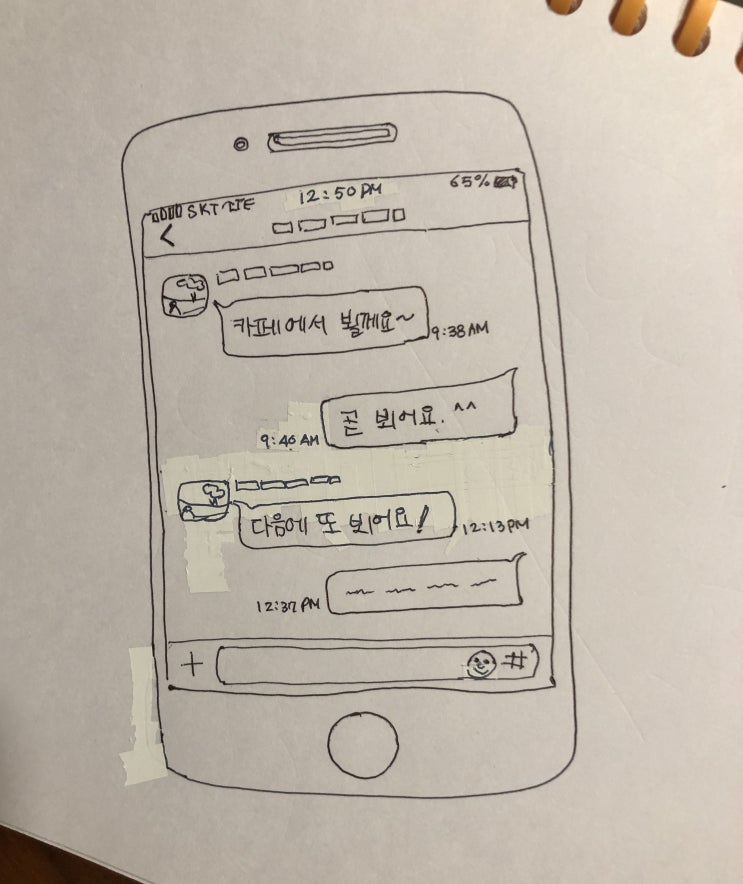 SKT LTE 12:50 PM 65%
<
카페에서 뵐께요~
9:38 AM
곧 뵈어요. ^^
9:40 AM
다음에 또 뵈어요!
12:13 PM
12:37 PM
+ #